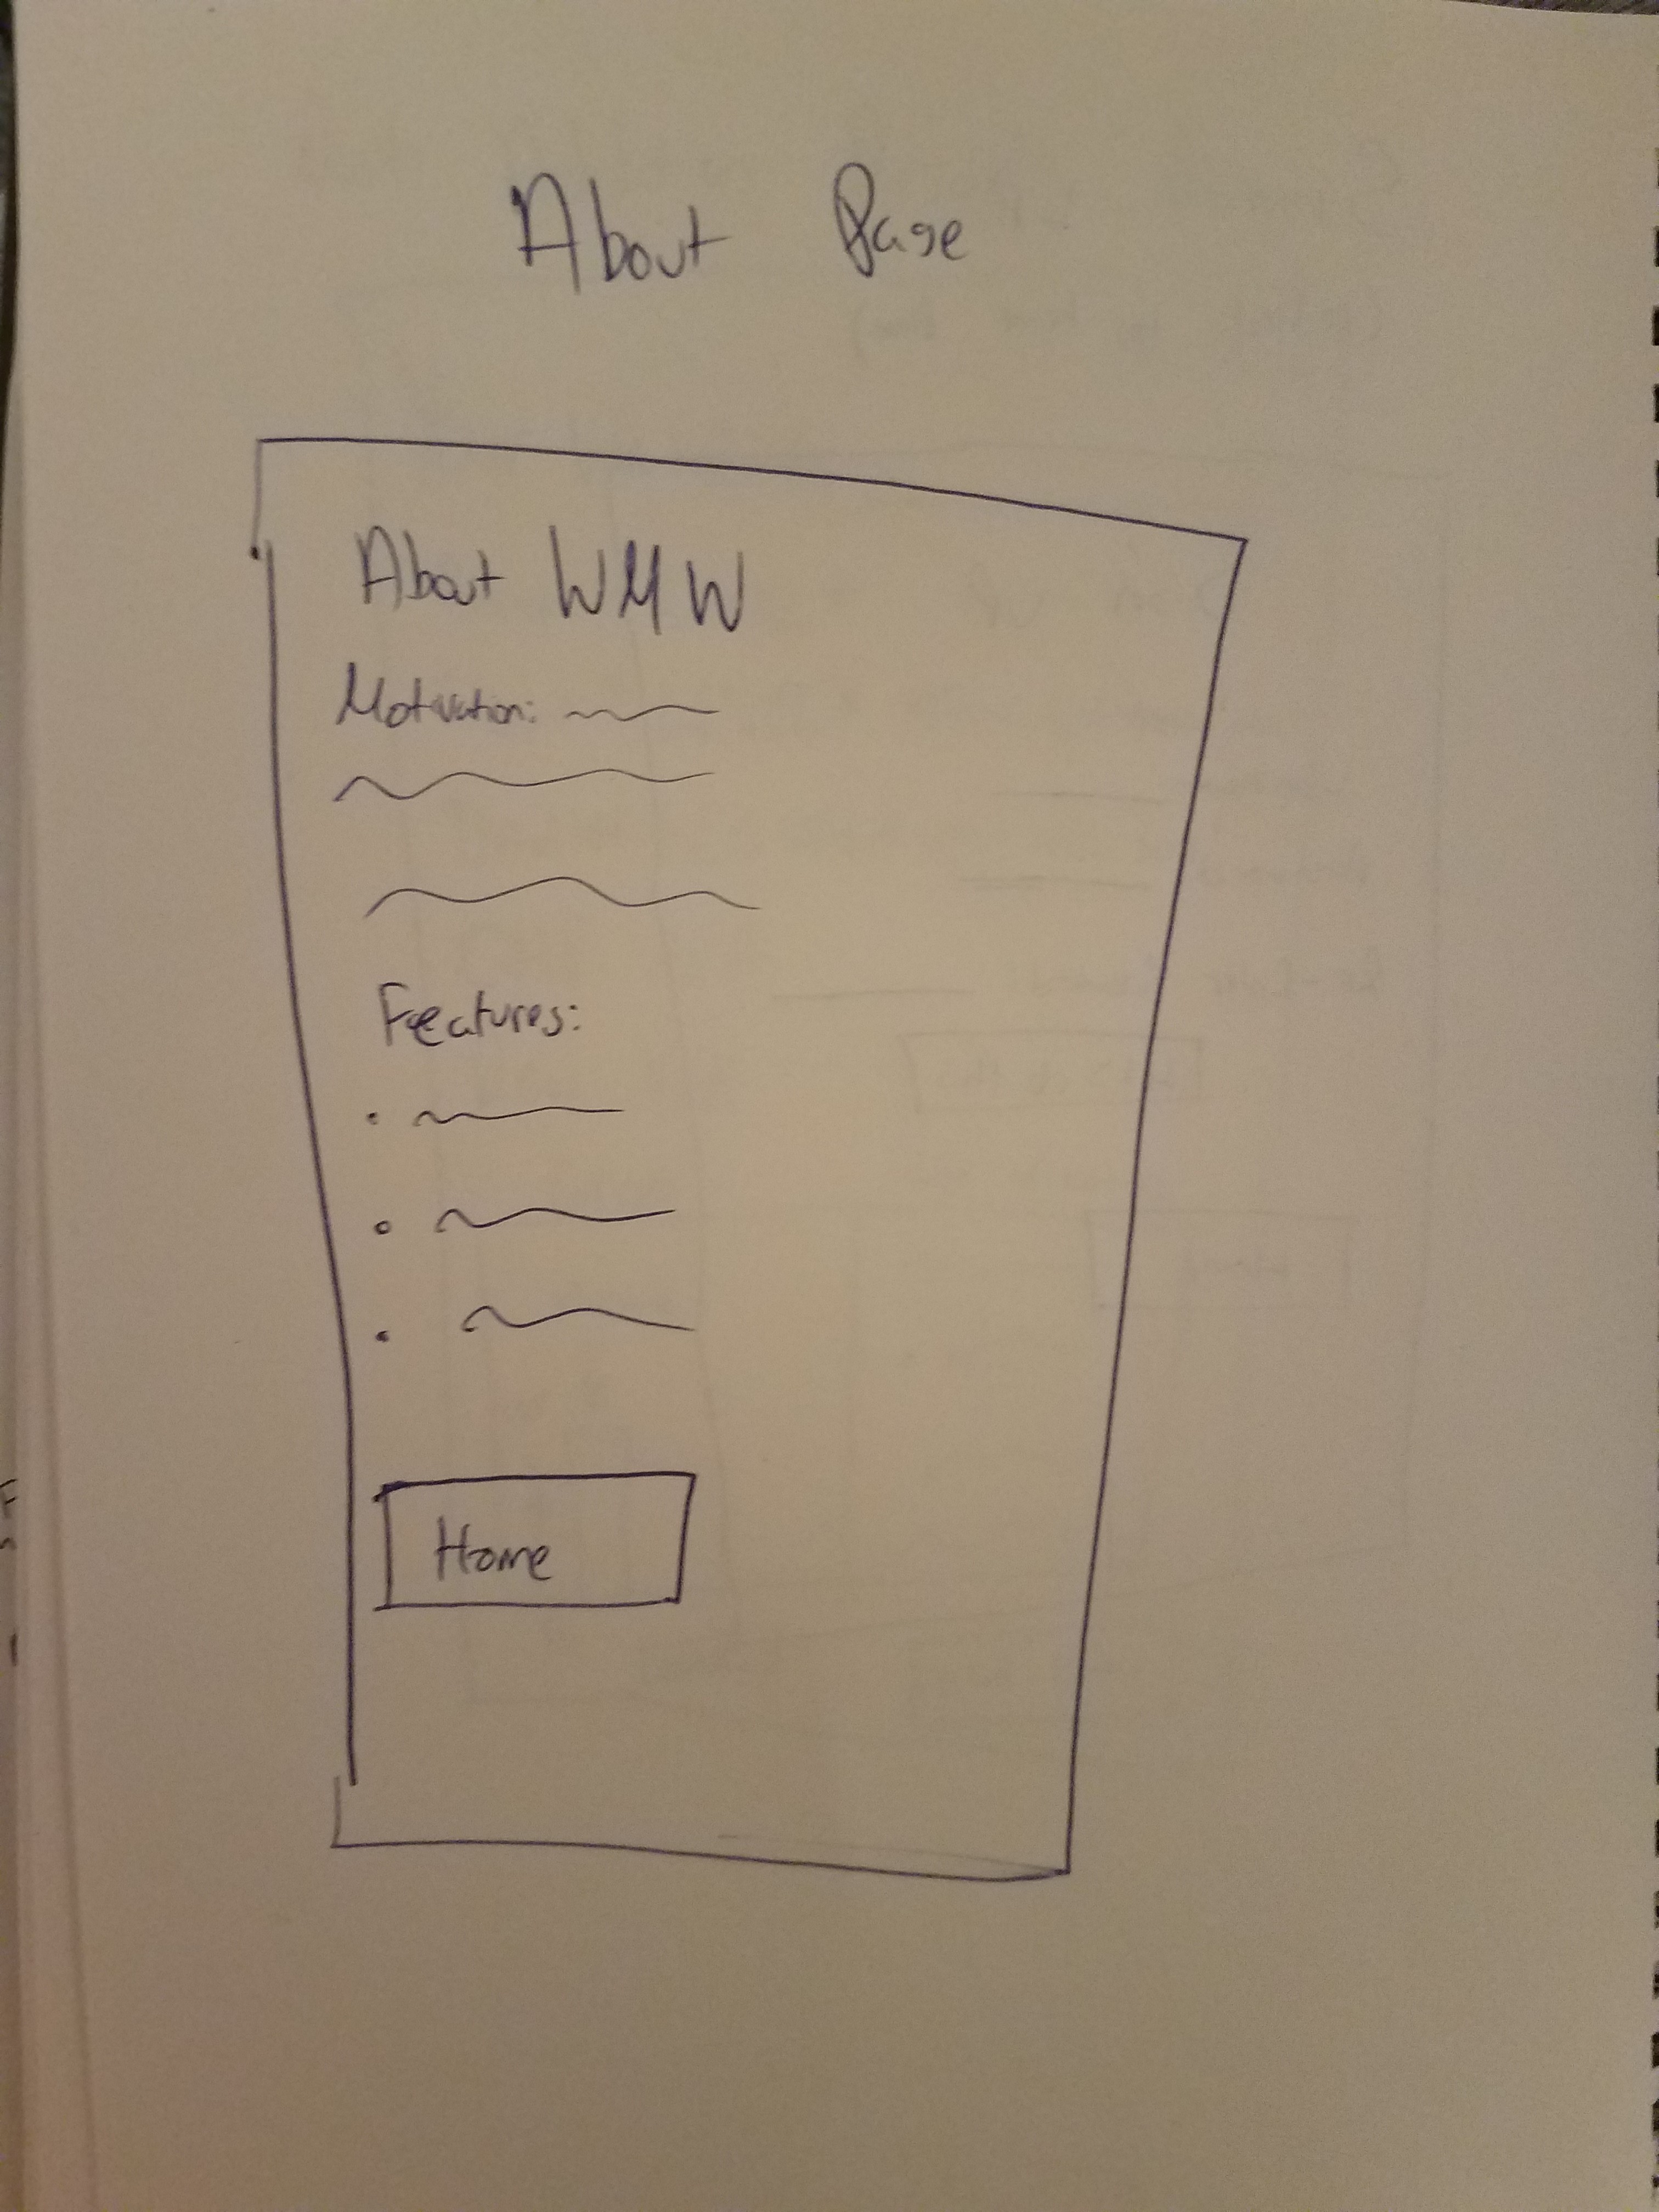 About Page
About WMW
Motivation:
Features:
Home